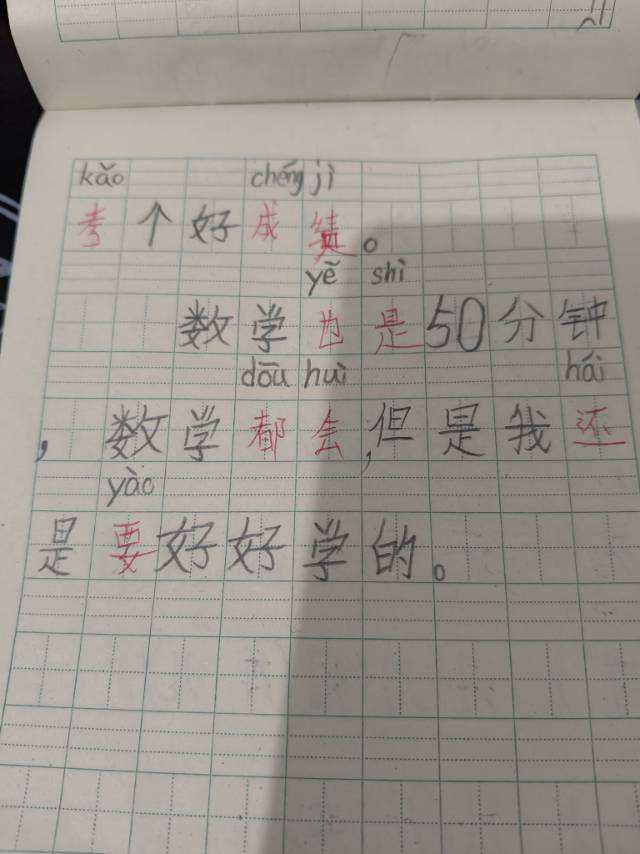 kǎo chéng jì
考个好成绩。
yě shì
数学也是50分钟
dōu huì hái
，数学都会，但是我还
yào
是要好好学的。